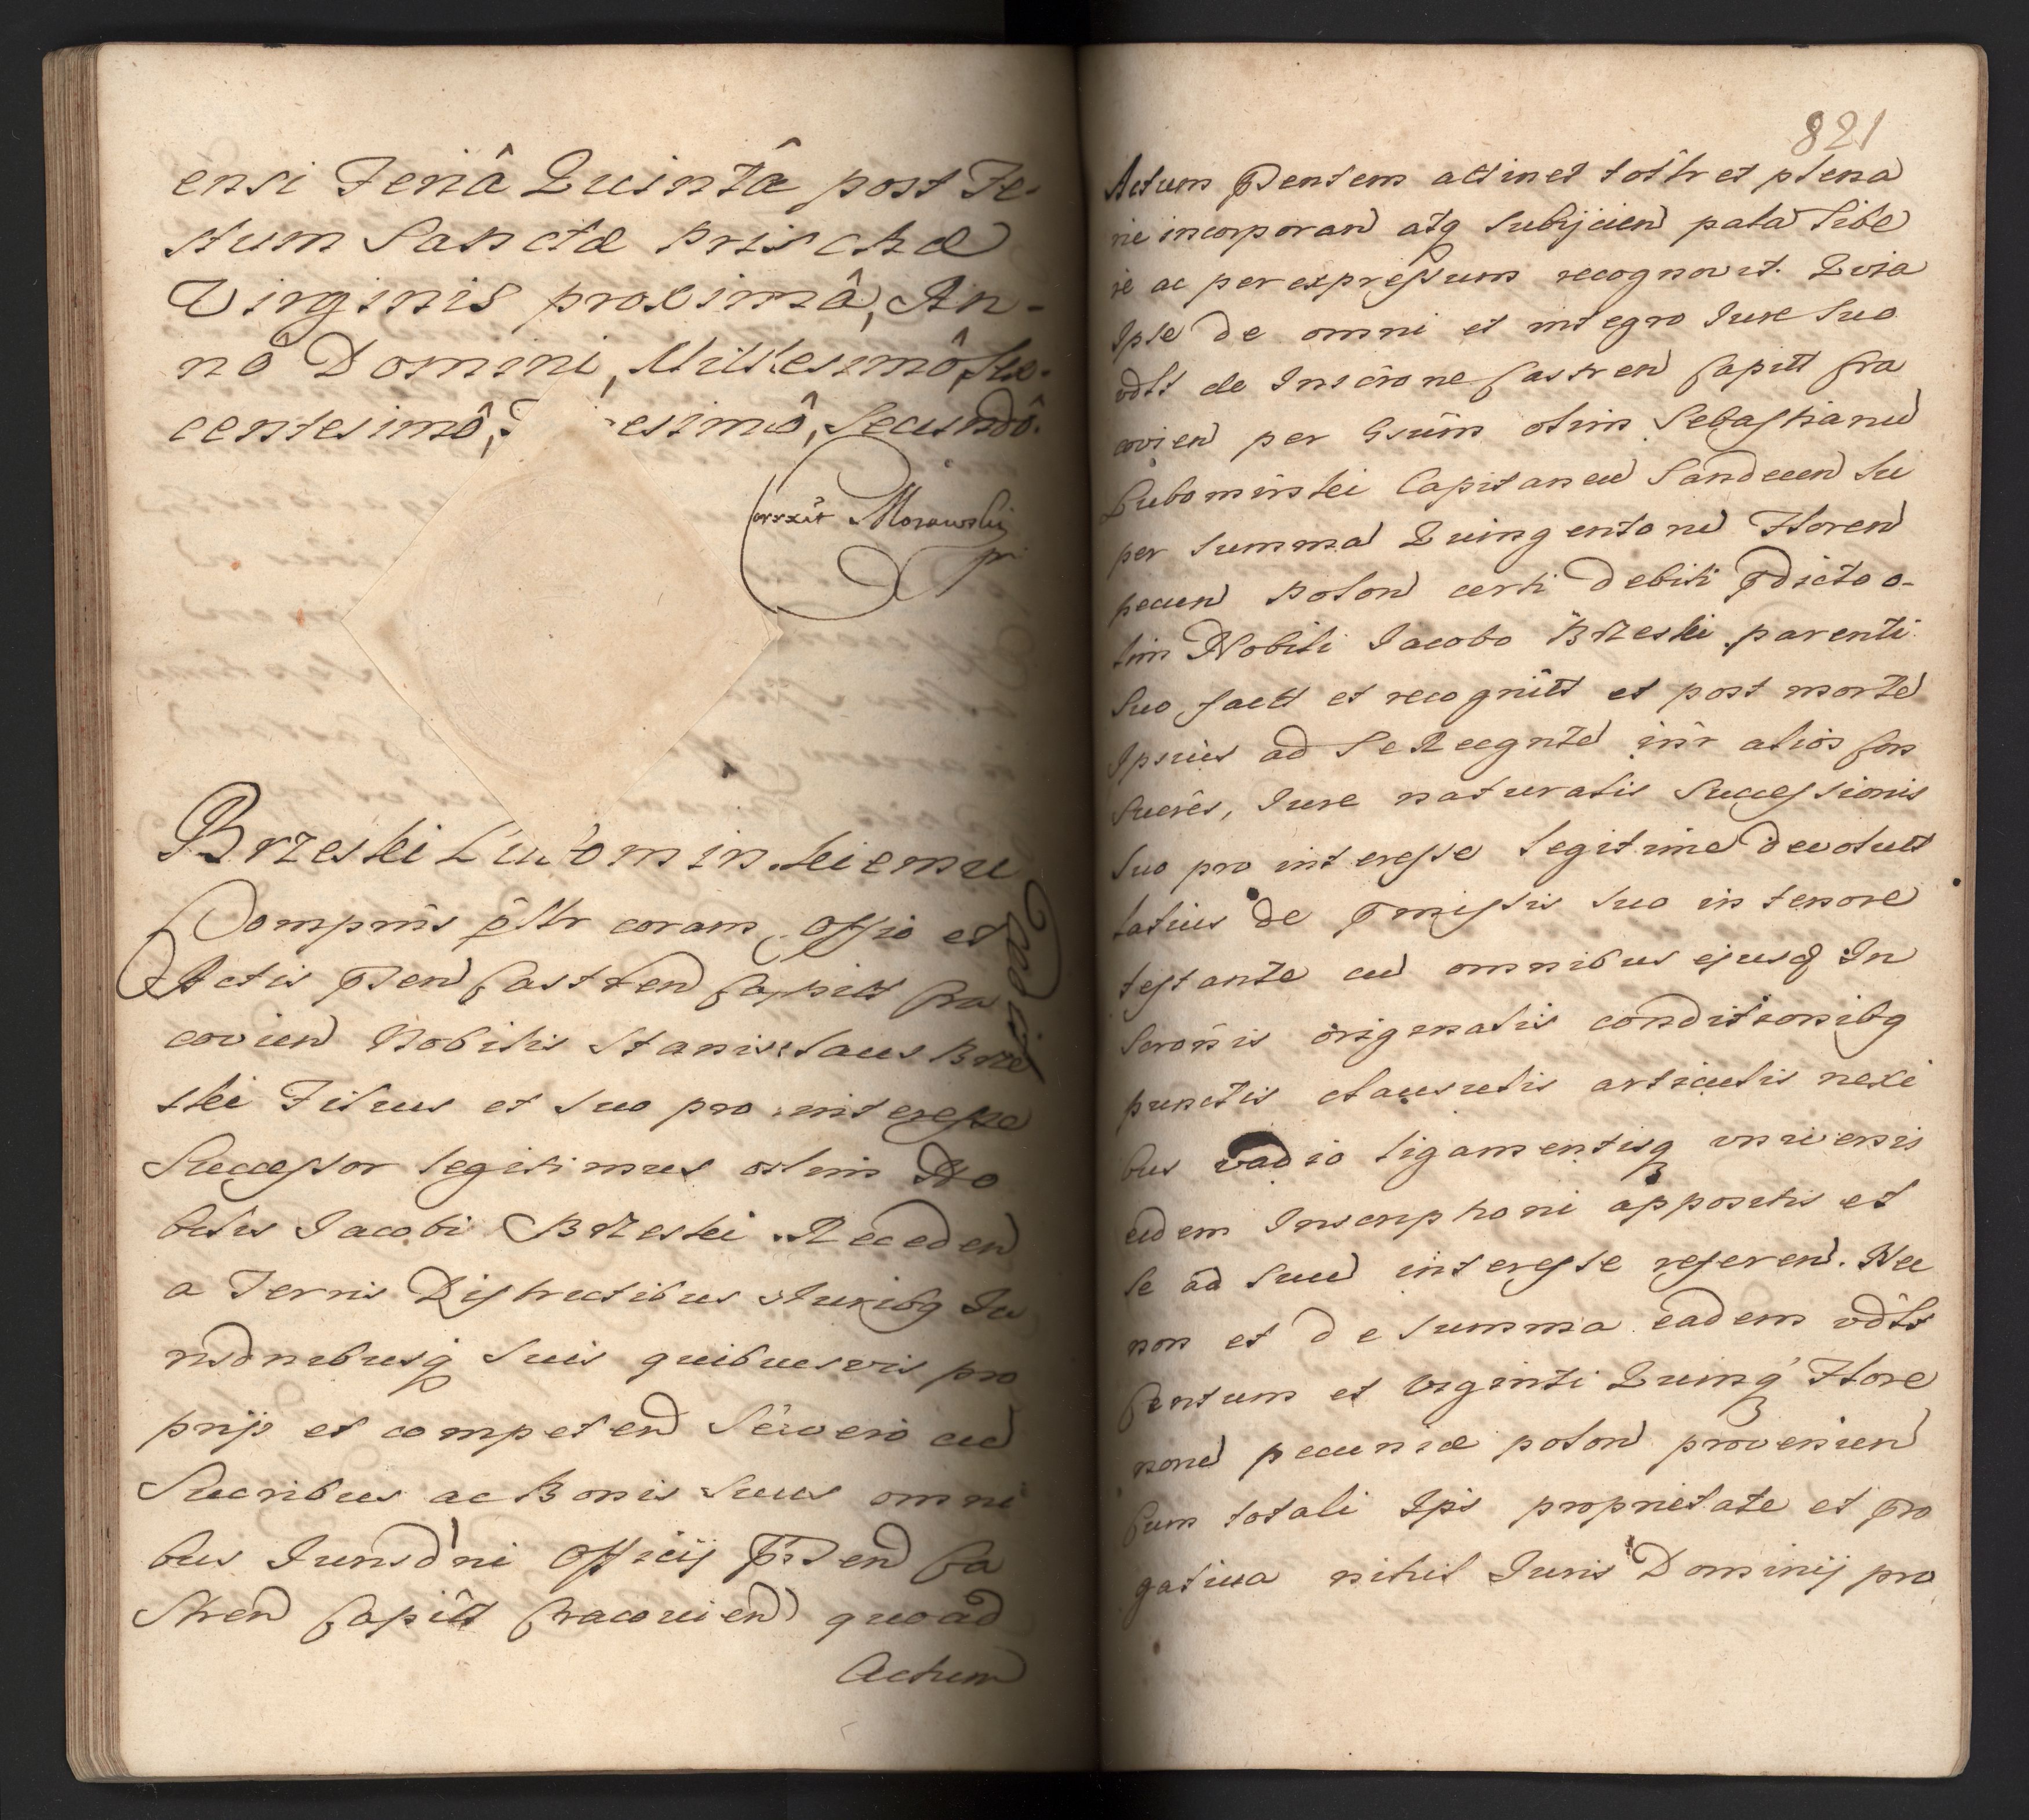 ensi Feriâ Quintâ post Fe-
stum Sanctæ Priscæ
Virginis proximâ, An-
nô Domini, Millesimô, Sex-
centesimô, esimô, Secundô.
Corrxit Morawski
Brzeski Lubomirskiemu
Comprns psltr coram Offio et
Actis pnden Castren Capitt Cra
covien Nobilis Stanislaus Brze
ski Filius et suo pro interesse
Successor legitimus olim No
bilis Jacobi Brzeski Receden
a Terris Districtibus Juribq Ju
risdnibusq suis quibusvis pro
prijs et competen Se vero cu
Sucribus ac Bonis suis omni
bus Jurisdni Officij pnden Ca
stren Capitt Cracovien quoad
Actum
821
Actum pndentem attinet totltr et plena
rie incorporan atq subijcien palā libe
re ac per expressum recognovit. Quia
Ipse de omni et integro Jure suo
vdlt de Inscrone Castren Capitt Cra
covien per Gsum olim Sebastianū
Lubomirski Capitaneū Sandecen su
per summā Quingentorū Floren
pecun Polon certi debiti pdicto o-
lim Nobili Jacobo Brzeski parenti
suo factt et recognitt et post mortē
Ipsius ad Se Recgntē intr alios con
sucrēs, Jure naturalis successionis
suo pro interesse legitime devolutt
latius de pmissis suo in tenore
testante cū omnibus ejusq In
scronis originalis conditionibq
punctis clausulis articulis nexi
bus vadio ligamentisq universis
eidem Inscriptioni appositis et
se ad suū interesse referen. Nec
non et de summa eadem vdlt
Centum et Viginti Quinq Flore
norū pecuniæ polon provenien
Cum totali Ips proprietate et pro
gativa nihil Juris Dominij pro